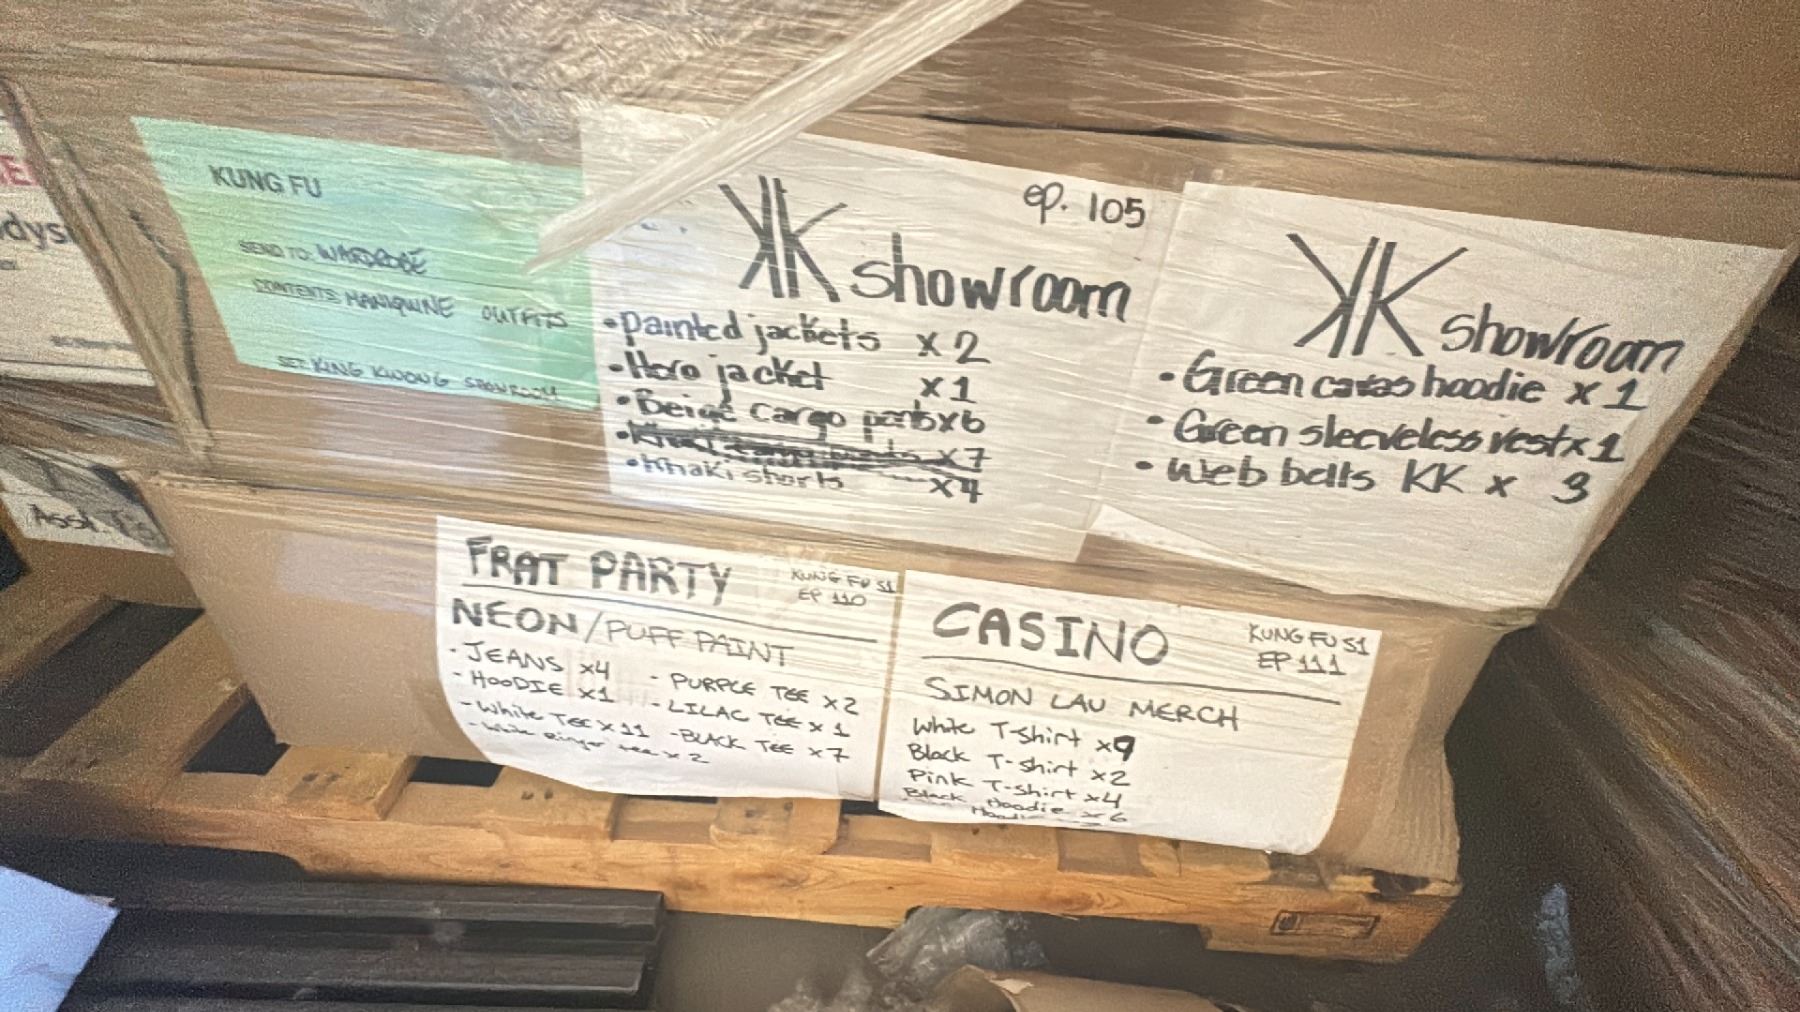 KUNG FU
SEND TO: WARDROBE
CONTENTS: MANIQUINE OUTFITS
SET: KUNG KWONG SHOWROOM
ep. 105
KK showroom
• Painted jackets x 2
• Hero jacket x 1
• Beige cargo pants x 6
x 7
• Khaki shorts x 4
KK showroom
• Green cavas hoodie x 1
• Green sleeveless vest x 1
• Web bells KK x 3
dys
Asst. T's
FRAT PARTY
KUNG FU S1
EP 110
NEON/PUFF PAINT
- JEANS x4
- HOODIE x1
- White TEE x 11
- White Ringer tee x 2
- PURPLE TEE x 2
- LILAC TEE x 1
- BLACK TEE x 7
CASINO
KUNG FU S1
EP 111
SIMON LAU MERCH
White T-shirt x9
Black T-shirt x2
Pink T-shirt x4
Black Hoodie x 6